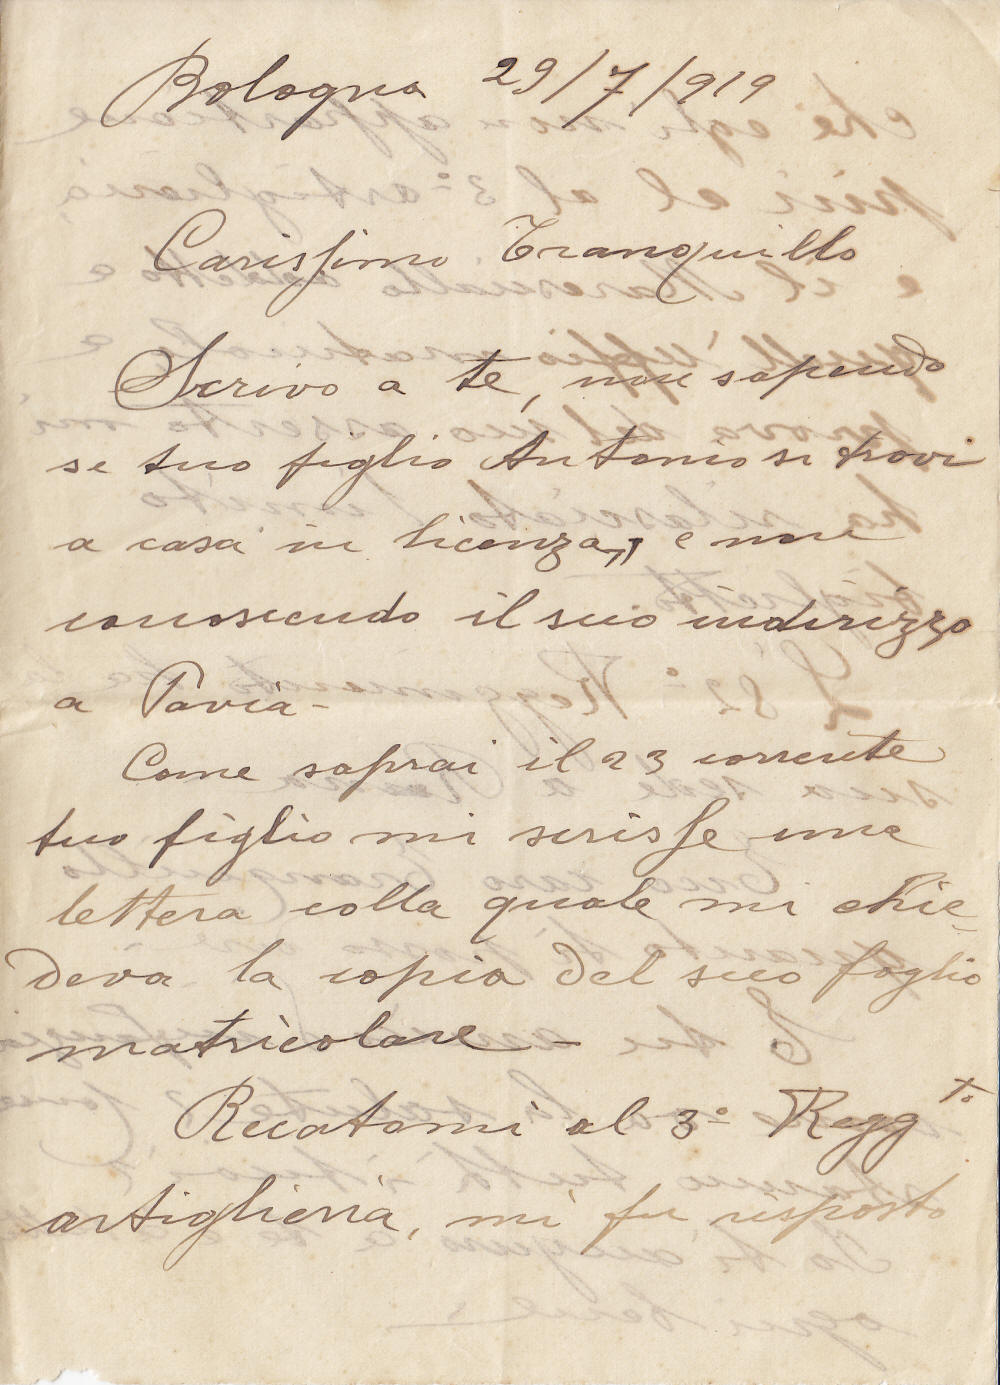 Bologna 29/7/919
Carissimo Tranquillo
Scrivo a te, non sapendo
se tuo figlio Antonio si trovi
a casa in licenza, e non
conoscendo il suo indirizzo
a Pavia -
Come saprai il 23 corrente
tuo figlio mi scrisse una
lettera colla quale mi chie-
deva la copia del suo foglio
matricolare -
Recatomi al 3° Regg.to
artiglieria, mi fu risposto